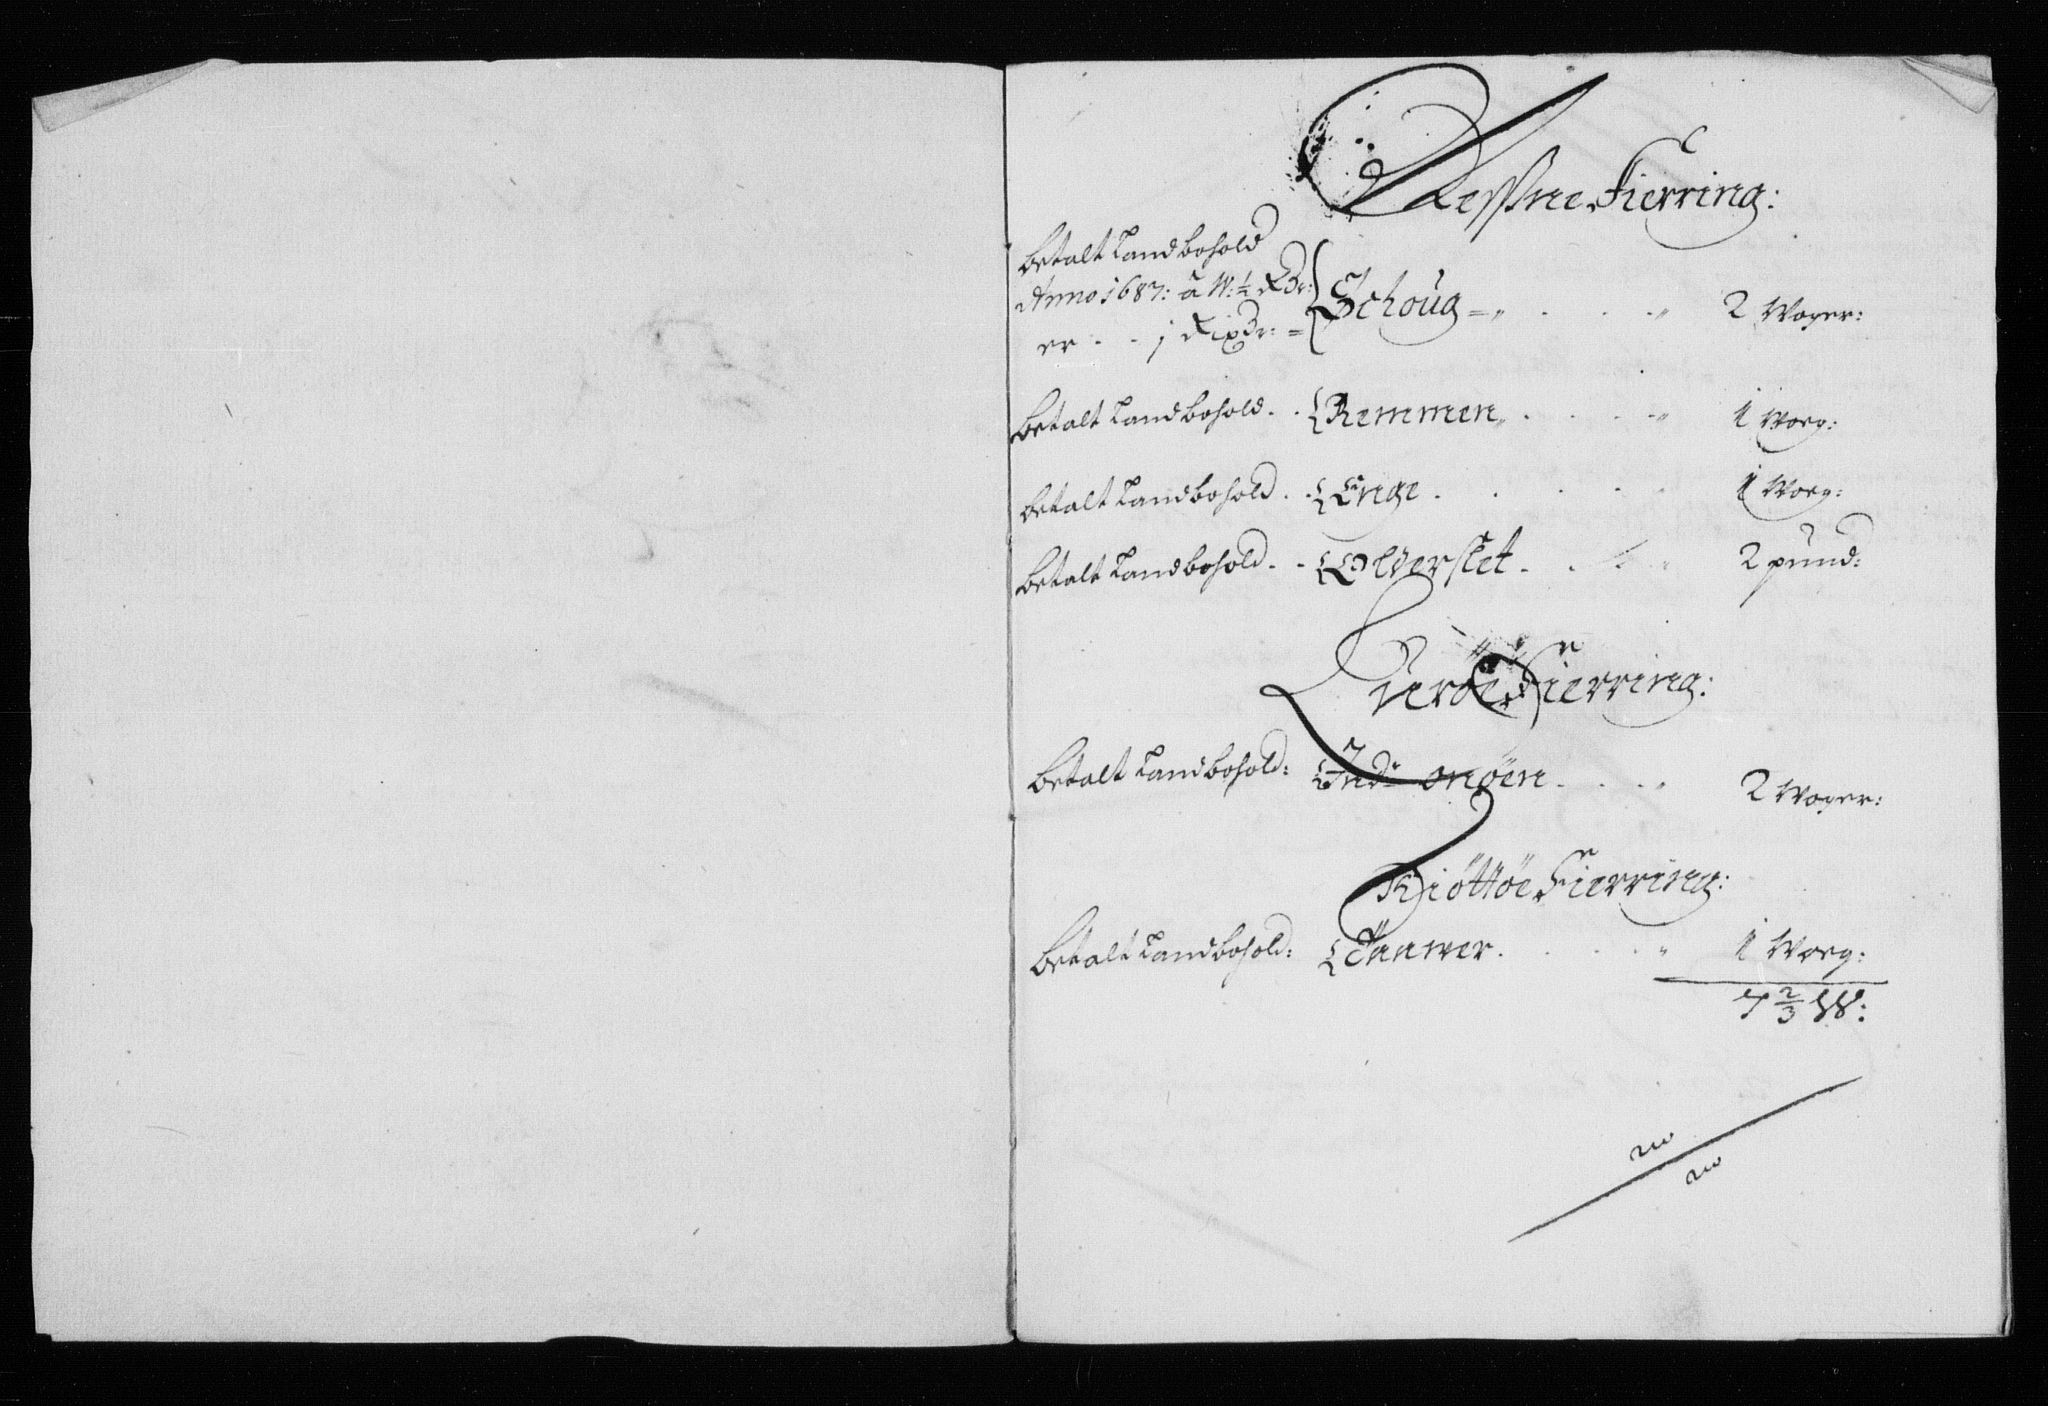 Nessne Fierring:
betalt Landbohold
Anno 1687: â W: ½ Rdr:
er . . 1 Rixdr: = { Schoug = „ . . . „ 2 Woger:
betalt Landbohold . . { Remmen „ . . . „ 1 Woeg:
betalt Landbohold . . { Enge . . . . 1 Woeg:
betalt Landbohold . . { Olderslet . . . „ 2 pund:
Lurøe Fierring:
betalt Landbohold: { Indr onøen . . . „ 2 Woger:
Kiøttøe Fierring:
betalt Landbohold: { Taawer . . . „ 1 Woeg:
7 2/3 W: